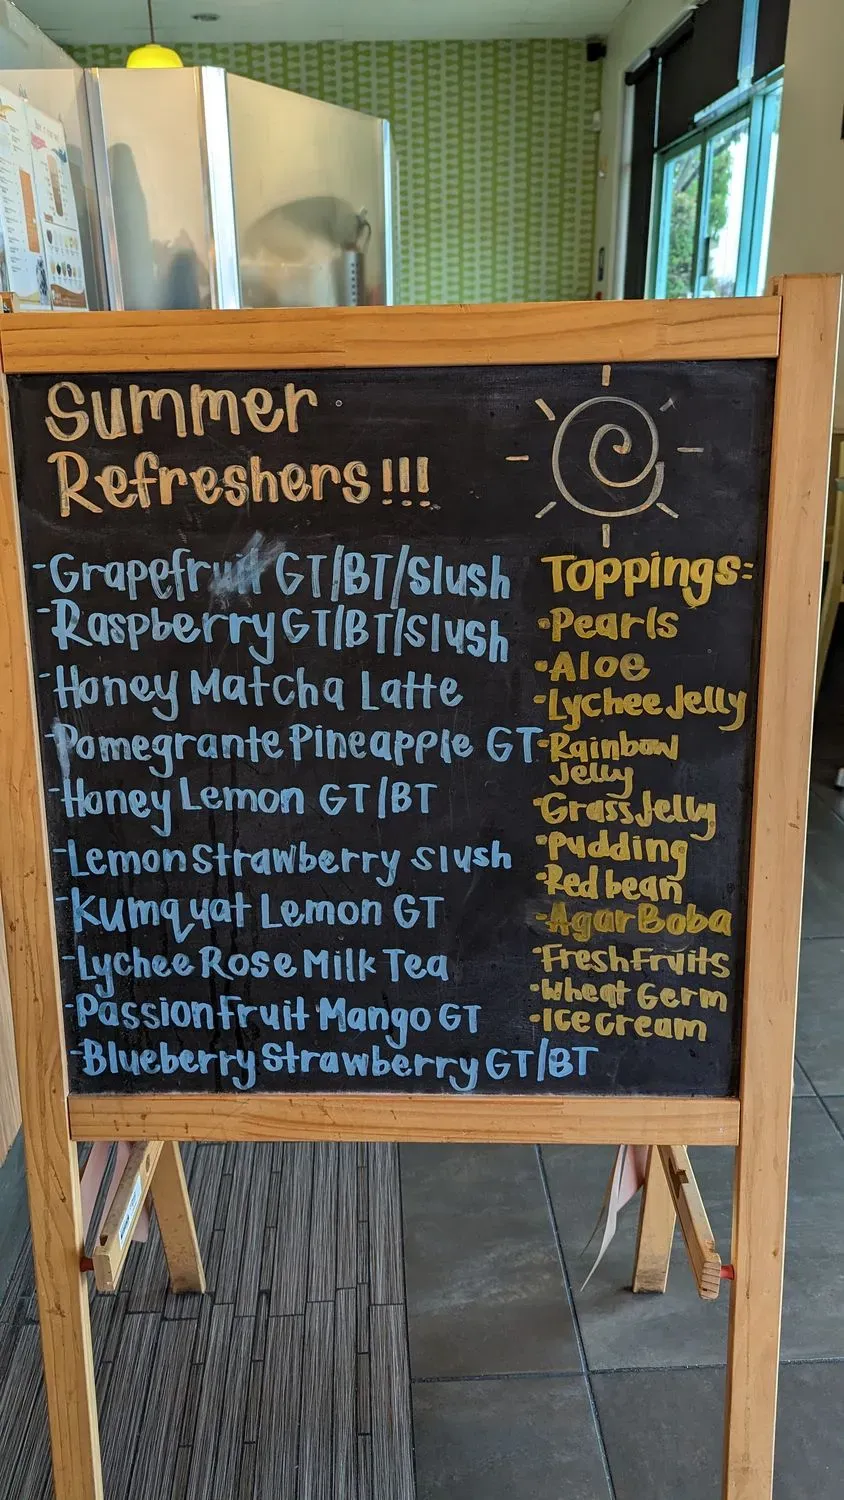 Summer
Refreshers!!!
-Grapefruit GT/BT/Slush
-Raspberry GT/BT/Slush
-Honey Matcha Latte
-Pomegrante Pineapple GT
-Honey Lemon GT/BT
-Lemon Strawberry Slush
-Kumquat Lemon GT
-Lychee Rose Milk Tea
-Passion Fruit Mango GT
-Blueberry Strawberry GT/BT
Toppings:
-Pearls
-Aloe
-Lychee Jelly
-Rainbow
Jelly
-Grass Jelly
-Pudding
-Red bean
-Agar Boba
-Fresh Fruits
-Wheat Germ
-Ice cream